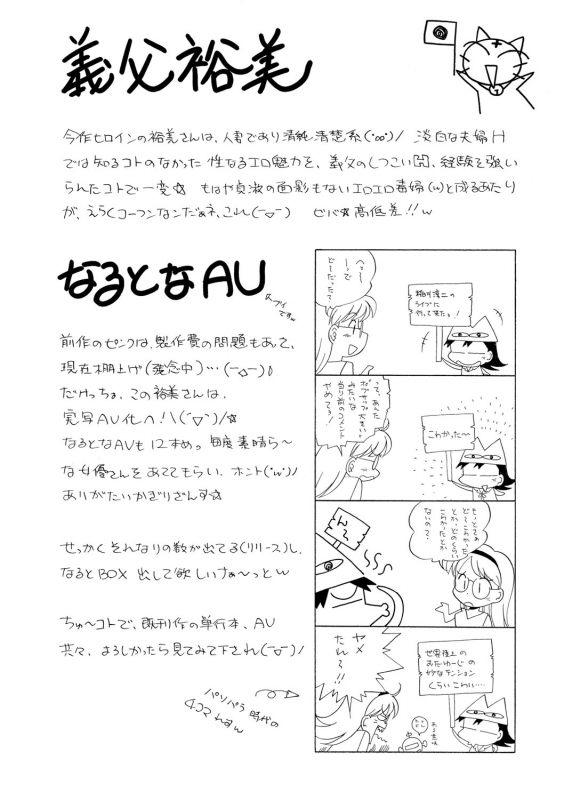 義父裕美
今作ヒロインの裕美さんは、人妻であり清純清楚系(°∞°)/ 淡白な夫婦H
では知るコトのなかった 性なるエロ魅力を、義父のしつこい 経験を強い
られたコトで一変☆ もはや貞淑の面影もないエロエロ若婦(w)と成るあたり
が、えらくコーフンなんだぁネ、これ(￣ー￣) ビバ☆高低差!!w
なるとなAU
スプイ
ですw
前作のピンクは、製作費の問題もあって、
現在棚上げ(残念中)…(￣△￣)
だけっちょ、この裕美さんは、
完写AV化へ!\(´▽`)/☆
なるとなAVも12本め。毎度素晴ら〜
な女優さんをあててもらい、ホント('w')/
ありがたいかぎりざんす☆
せっかくそれなりの数が出てる(リリース)し、
なるとBOX 出して欲しいなぁ〜っとw
ちゅ〜コトで、既刊作の単行本、AU
共々、よろしかったら見てみて下され(￣▽￣)/
パソパラ時代の
4コマっすw
へぇ〜
ーーで
どーだった?
稲川淳二の
ライブに
行って来たょ!
って、あんた
みたいな
当り前のコメント
やめてよ!
こわかった〜
もっとこぉ
ど〜こわかった
とか、どのくらい
こわかったとか
ないの?
ん〜
ヤメ
たれ〜!!
世界陸上の
おだゆーじの
妙なテンション
くらいこわい…
ある意味